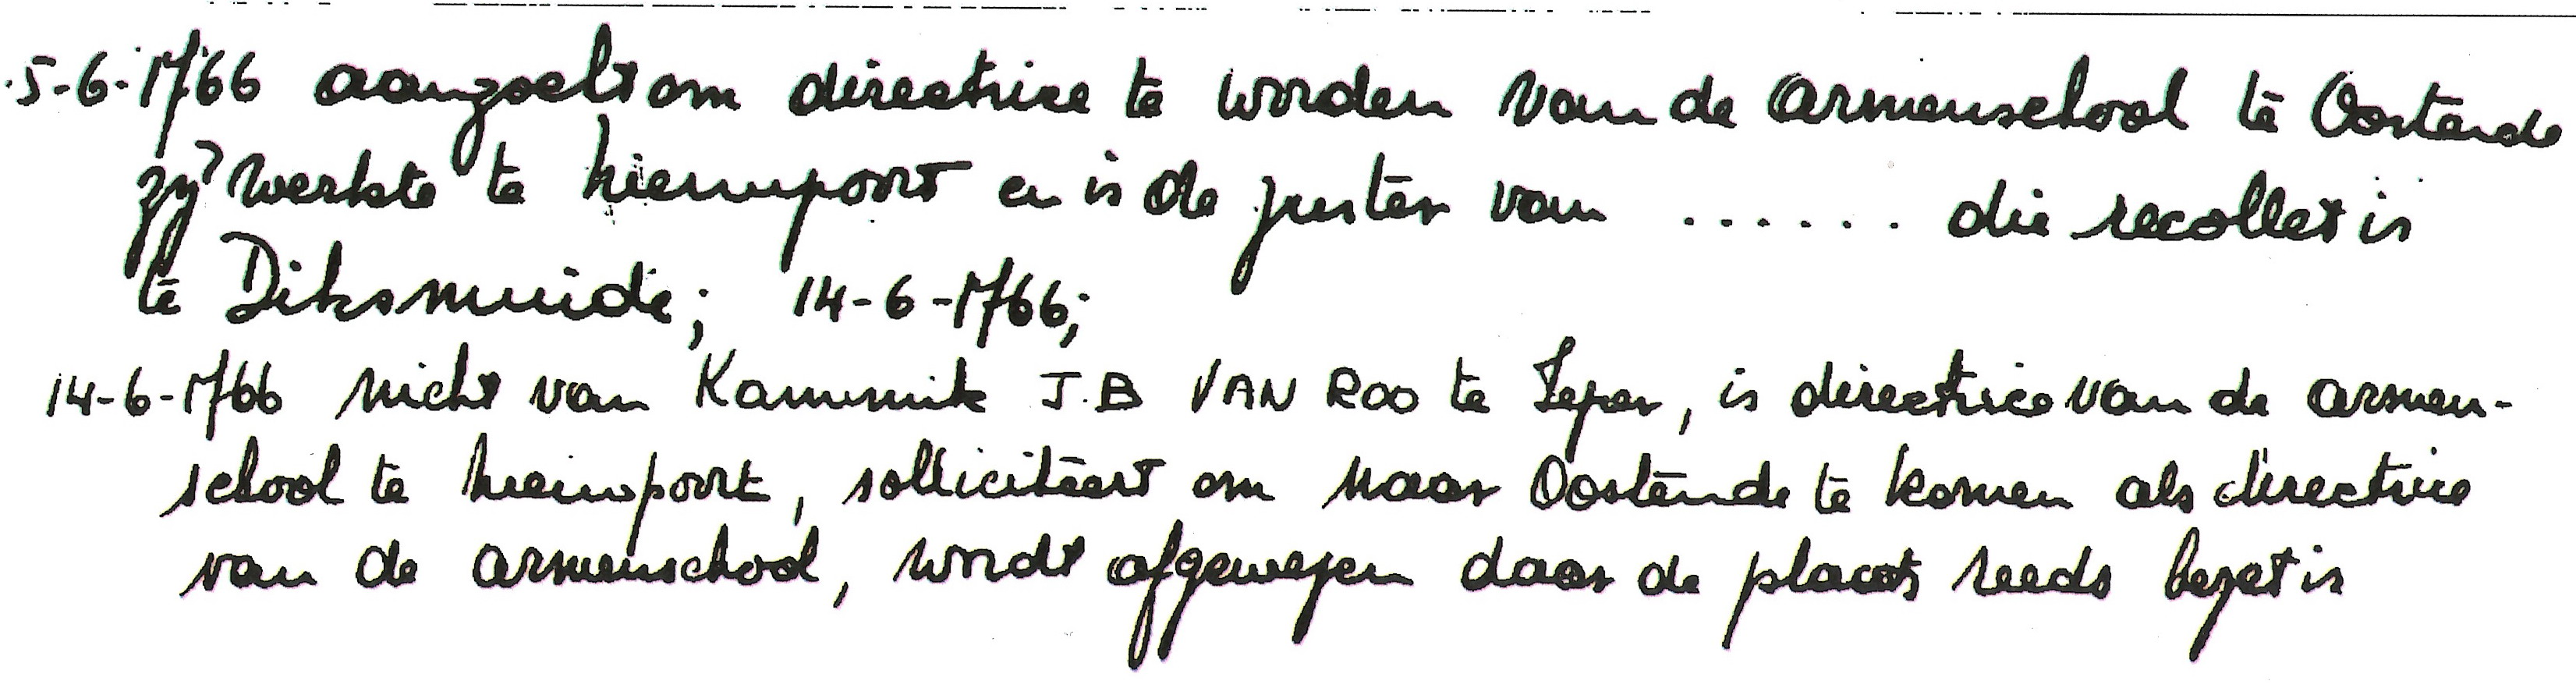 5-6-1766 aangzoekt om directrice te worden van de armenschool te Oostende
zij werkte te Nieuwpoort en is de zuster van ...... die recollet is
te Diksmuide; 14-6-1766;
14-6-1766 nicht van Kanunnik J.B VAN ROO te Ieper, is directrice van de armen-
school te Nieuwpoort, solliciteert om naar Oostende te komen als directrice
van de armenschool, wordt afgewezen daar de plaats reeds bezet is